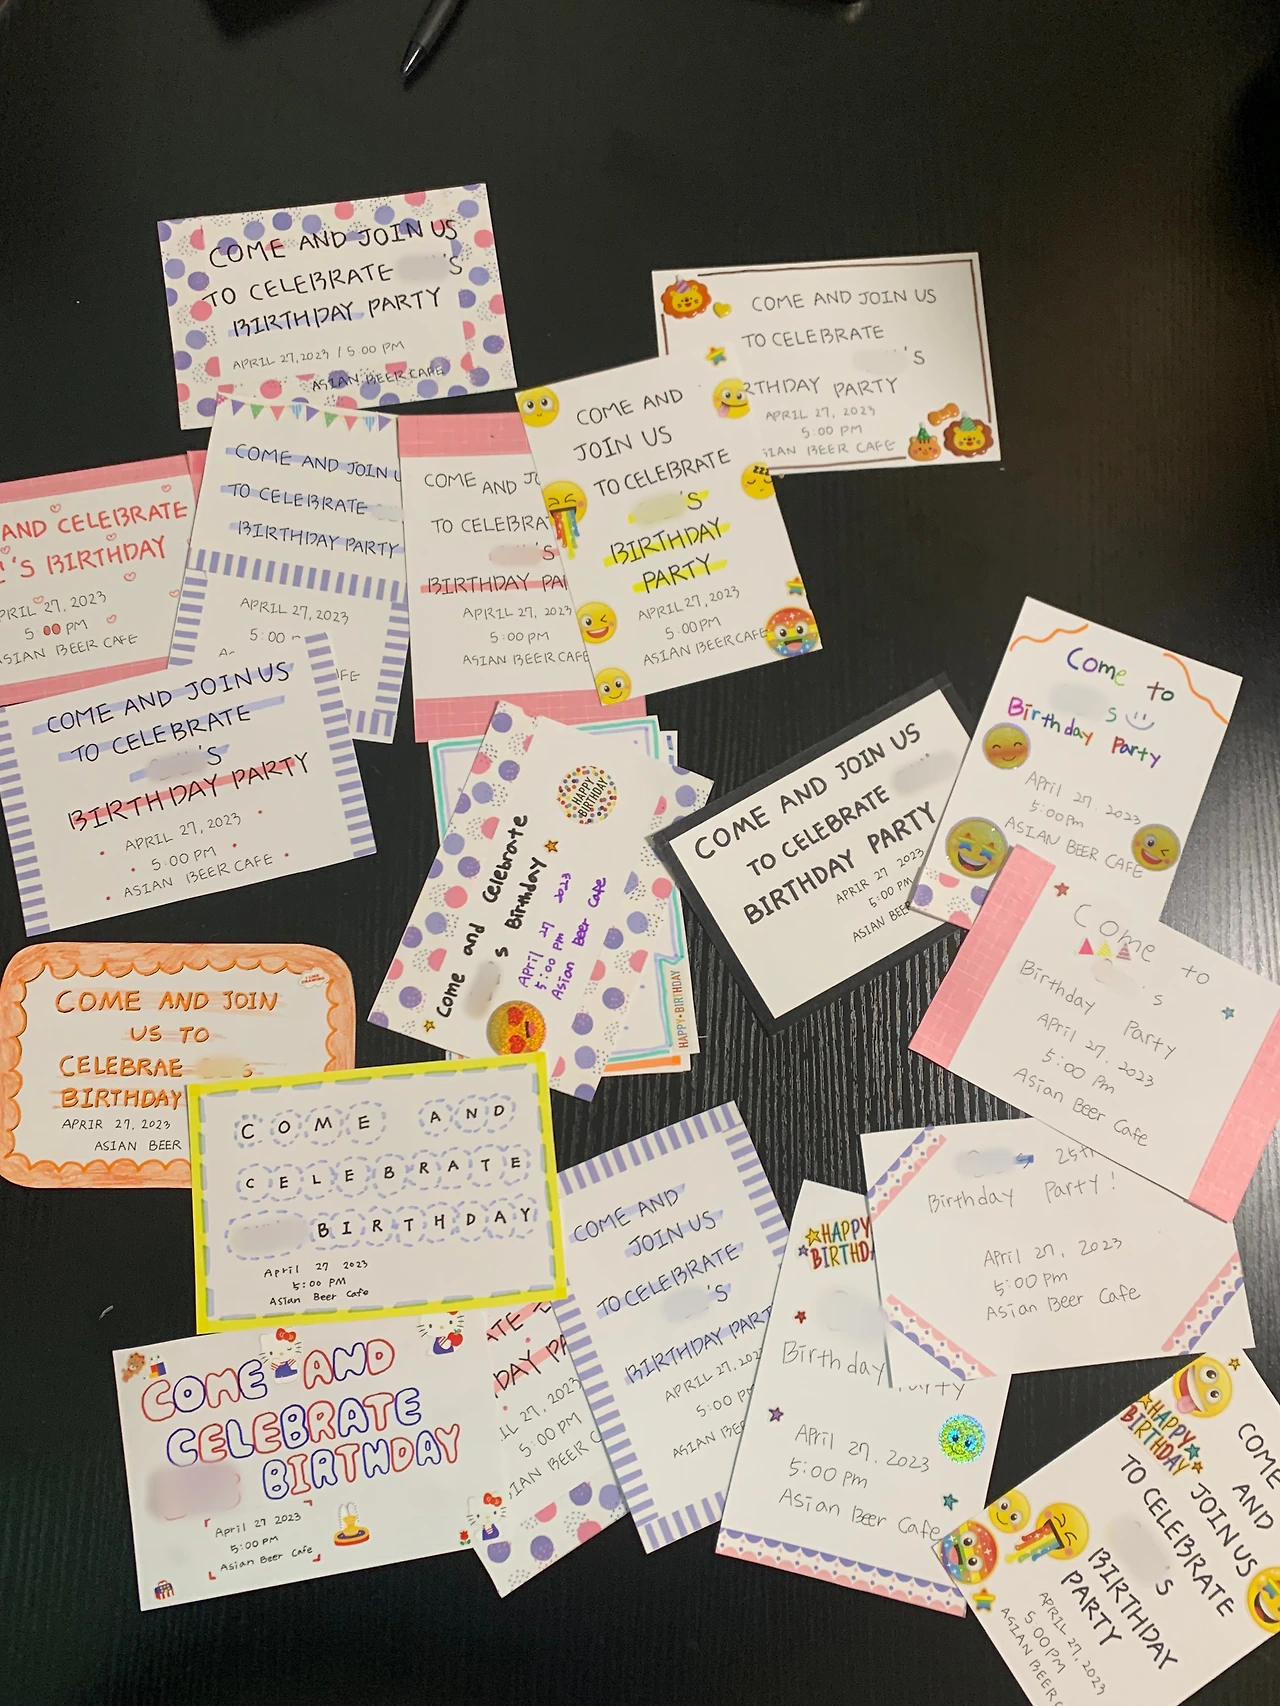 COME AND JOIN US
TO CELEBRATE 'S
BIRTHDAY PARTY
APRIL 27, 2023 / 5:00 PM
ASIAN BEER CAFE
COME AND JOIN US
TO CELEBRATE
'S
RTHDAY PARTY
APRIL 27, 2023
5:00 PM
SIAN BEER CAFE
AND CELEBRATE
'S BIRTHDAY
PRIL 27, 2023
5:00 PM
ASIAN BEER CAFE
COME AND JOIN U
TO CELEBRATE
BIRTHDAY PARTY
APRIL 27, 2023
5:00
FE
COME AND JO
TO CELEBRA
'S
BIRTHDAY PA
APRIL 27, 2023
5:00 PM
ASIAN BEER CAFE
COME AND
JOIN US
TO CELEBRATE
'S
BIRTHDAY
PARTY
APRIL 27, 2023
5:00 PM
ASIAN BEER CAFE
ZZZ
COME AND JOIN US
TO CELEBRATE
'S
BIRTHDAY PARTY
APRIL 27, 2023
5:00 PM
ASIAN BEER CAFE
Come and Celebrate
s Birthday
April 27 2023
5:00 PM
Asian Beer Cafe
HAPPY BIRTHDAY
HAPPY BIRTHDAY
COME AND JOIN US
TO CELEBRATE
BIRTHDAY PARTY
APRIR 27 2023
5:00 PM
ASIAN BEER
Come to
s
Birthday Party
April 27. 2023
5:00pm
ASIAN BEER CAFE
Come to
's
Birthday Party
April 27. 2023
5:00 pm
Asian Beer Cafe
COME AND JOIN
US TO
CELEBRAE S
BIRTHDAY
APRIR 27, 2023
ASIAN BEER
COME AND
CELEBRATE
BIRTHDAY
April 27 2023
5:00 PM
Asian Beer Cafe
COME AND
JOIN US
TO CELEBRATE
'S
BIRTHDAY PART
APRIL 27, 202
5:00 PM
ASIAN BEE
s 25th
Birthday Party!
April 27, 2023
5:00 pm
Asian Beer Cafe
HAPPY
BIRTHD
Birthday Party
April 27. 2023
5:00 pm
Asian Beer Cafe
COME AND
CELEBRATE
BIRTHDAY
April 27 2023
5:00 PM
Asian Beer Cafe
ATE
DAY PA
IL 27, 2023
5:00 PM
SIAN BEER C
HAPPY
BIRTHDAY
COME
AND
JOIN US
TO CELEBRATE
'S
BIRTHDAY
PARTY
APRIL 27, 2023
5:00 PM
ASIAN BEER C